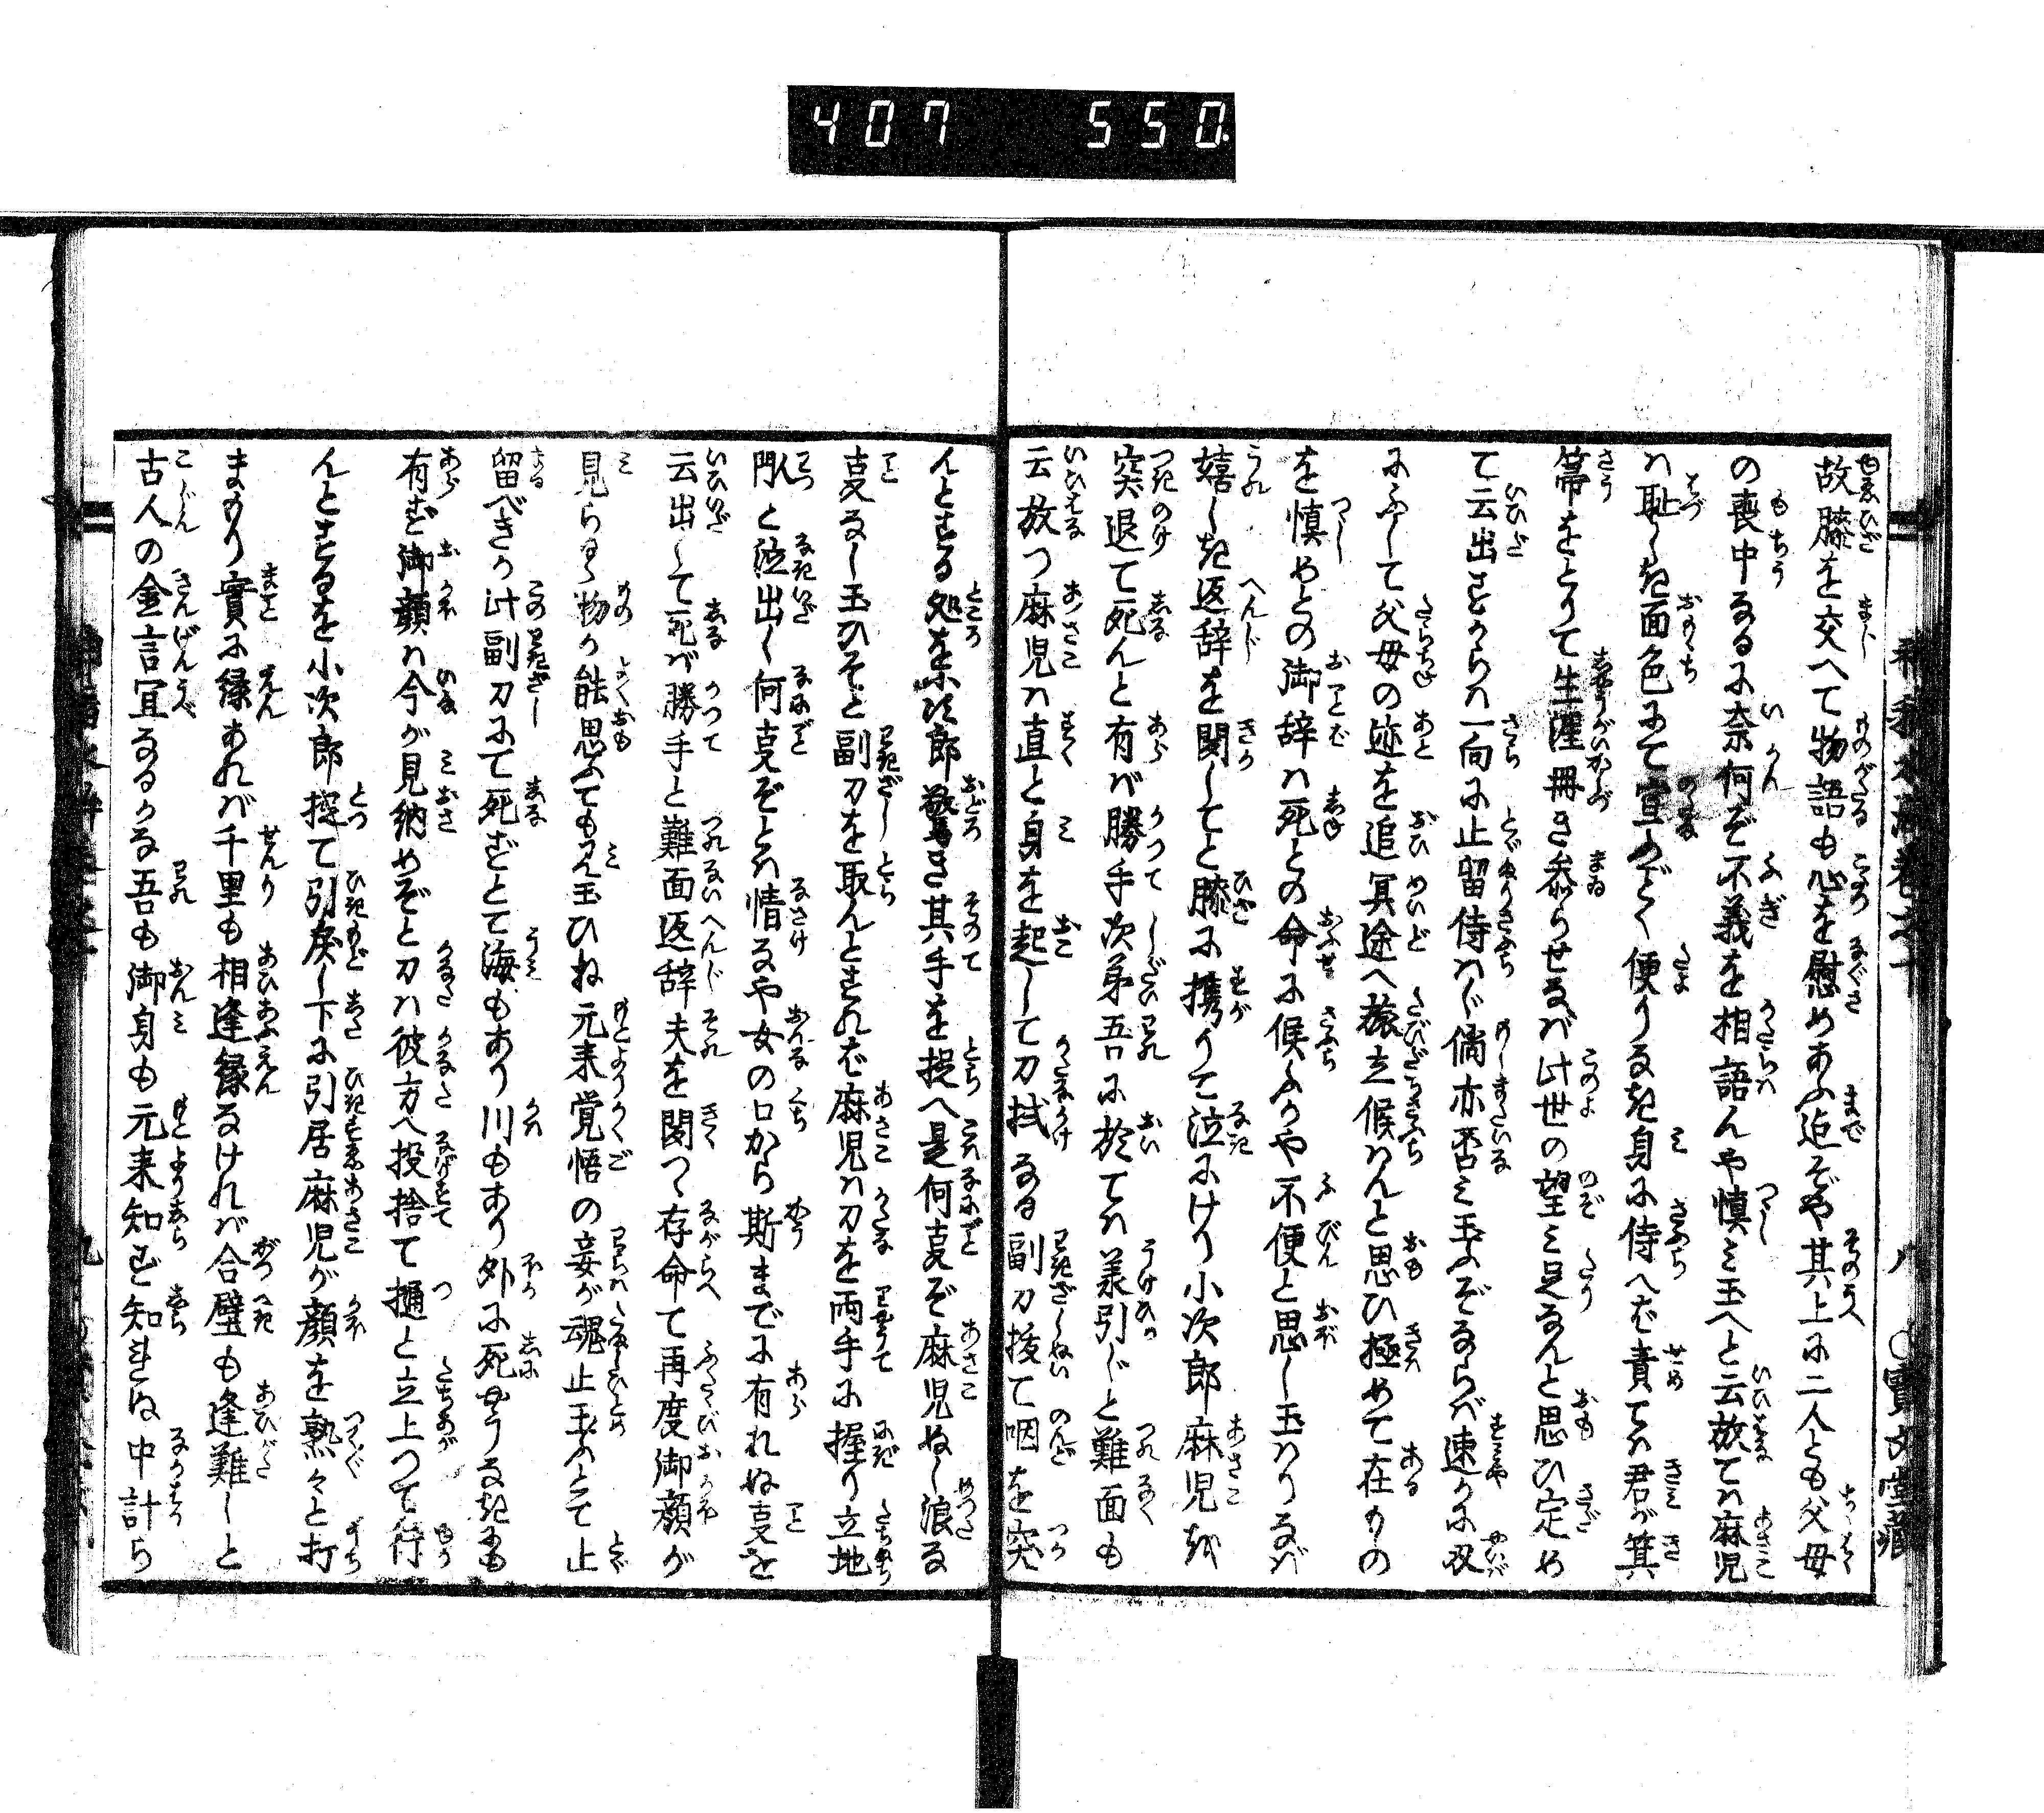 407 550
故膝を交へて物語も心を慰めあふ迄ぞや其上に二人とも父母
の喪中なるに奈何ぞ不義を相語んや慎ミ玉へと云放てハ麻児
ハ恥しき面色にて宣ふごとく便りなき身に侍へど責てハ君が箕
箒をとりて生涯冊き参らせなバ此世の望ミ足なんと思ひ定め
て云出せるからハ一向に止留侍ハじ倘亦否ミ玉ふぞならバ速かに刃
にふして父母の迹を追冥途へ旅立候ハんと思ひ極めて在ものの
を慎めとの御辞ハ死との命に候ふかや不便と思し玉ハりなバ
嬉しき返辞を聞してと膝に携りて泣にけり小次郎麻児を
突退て死んと有バ勝手次第吾に於てハ羕引じと難面も
云放つ麻児ハ直と身を起して刀拭なる副刀抜て咽を突
んとする処を小次郎驚き其手を捉へ是何㕝ぞ麻児ぬし浪る
㕝なし玉ひそと副刀を取んとすれど麻児ハ刀を両手に握り立地
閧と泣出し何㕝ぞとハ情なや女の口から斯までに有れぬ㕝を
云出して死バ勝手と難面返辞夫を聞つゝ存命て再度御顔が
見らるゝ物か能思ふても見玉ひね元来覚悟の妾が魂止玉ふとて止
留べきか此副刀にて死ずとて海もあり川もあり外に死やうなきにも
有ず御顔ハ今が見納めぞと刀ハ彼方へ投捨て撾と立上つて行
んとするを小次郎控て引戻し下に引居麻児が顔を熟々と打
まもり實に縁あれバ千里も相逢縁なけれバ合璧も逢難しと
古人の金言冝なるかな吾も御身も元来知ず知れぬ中計ら